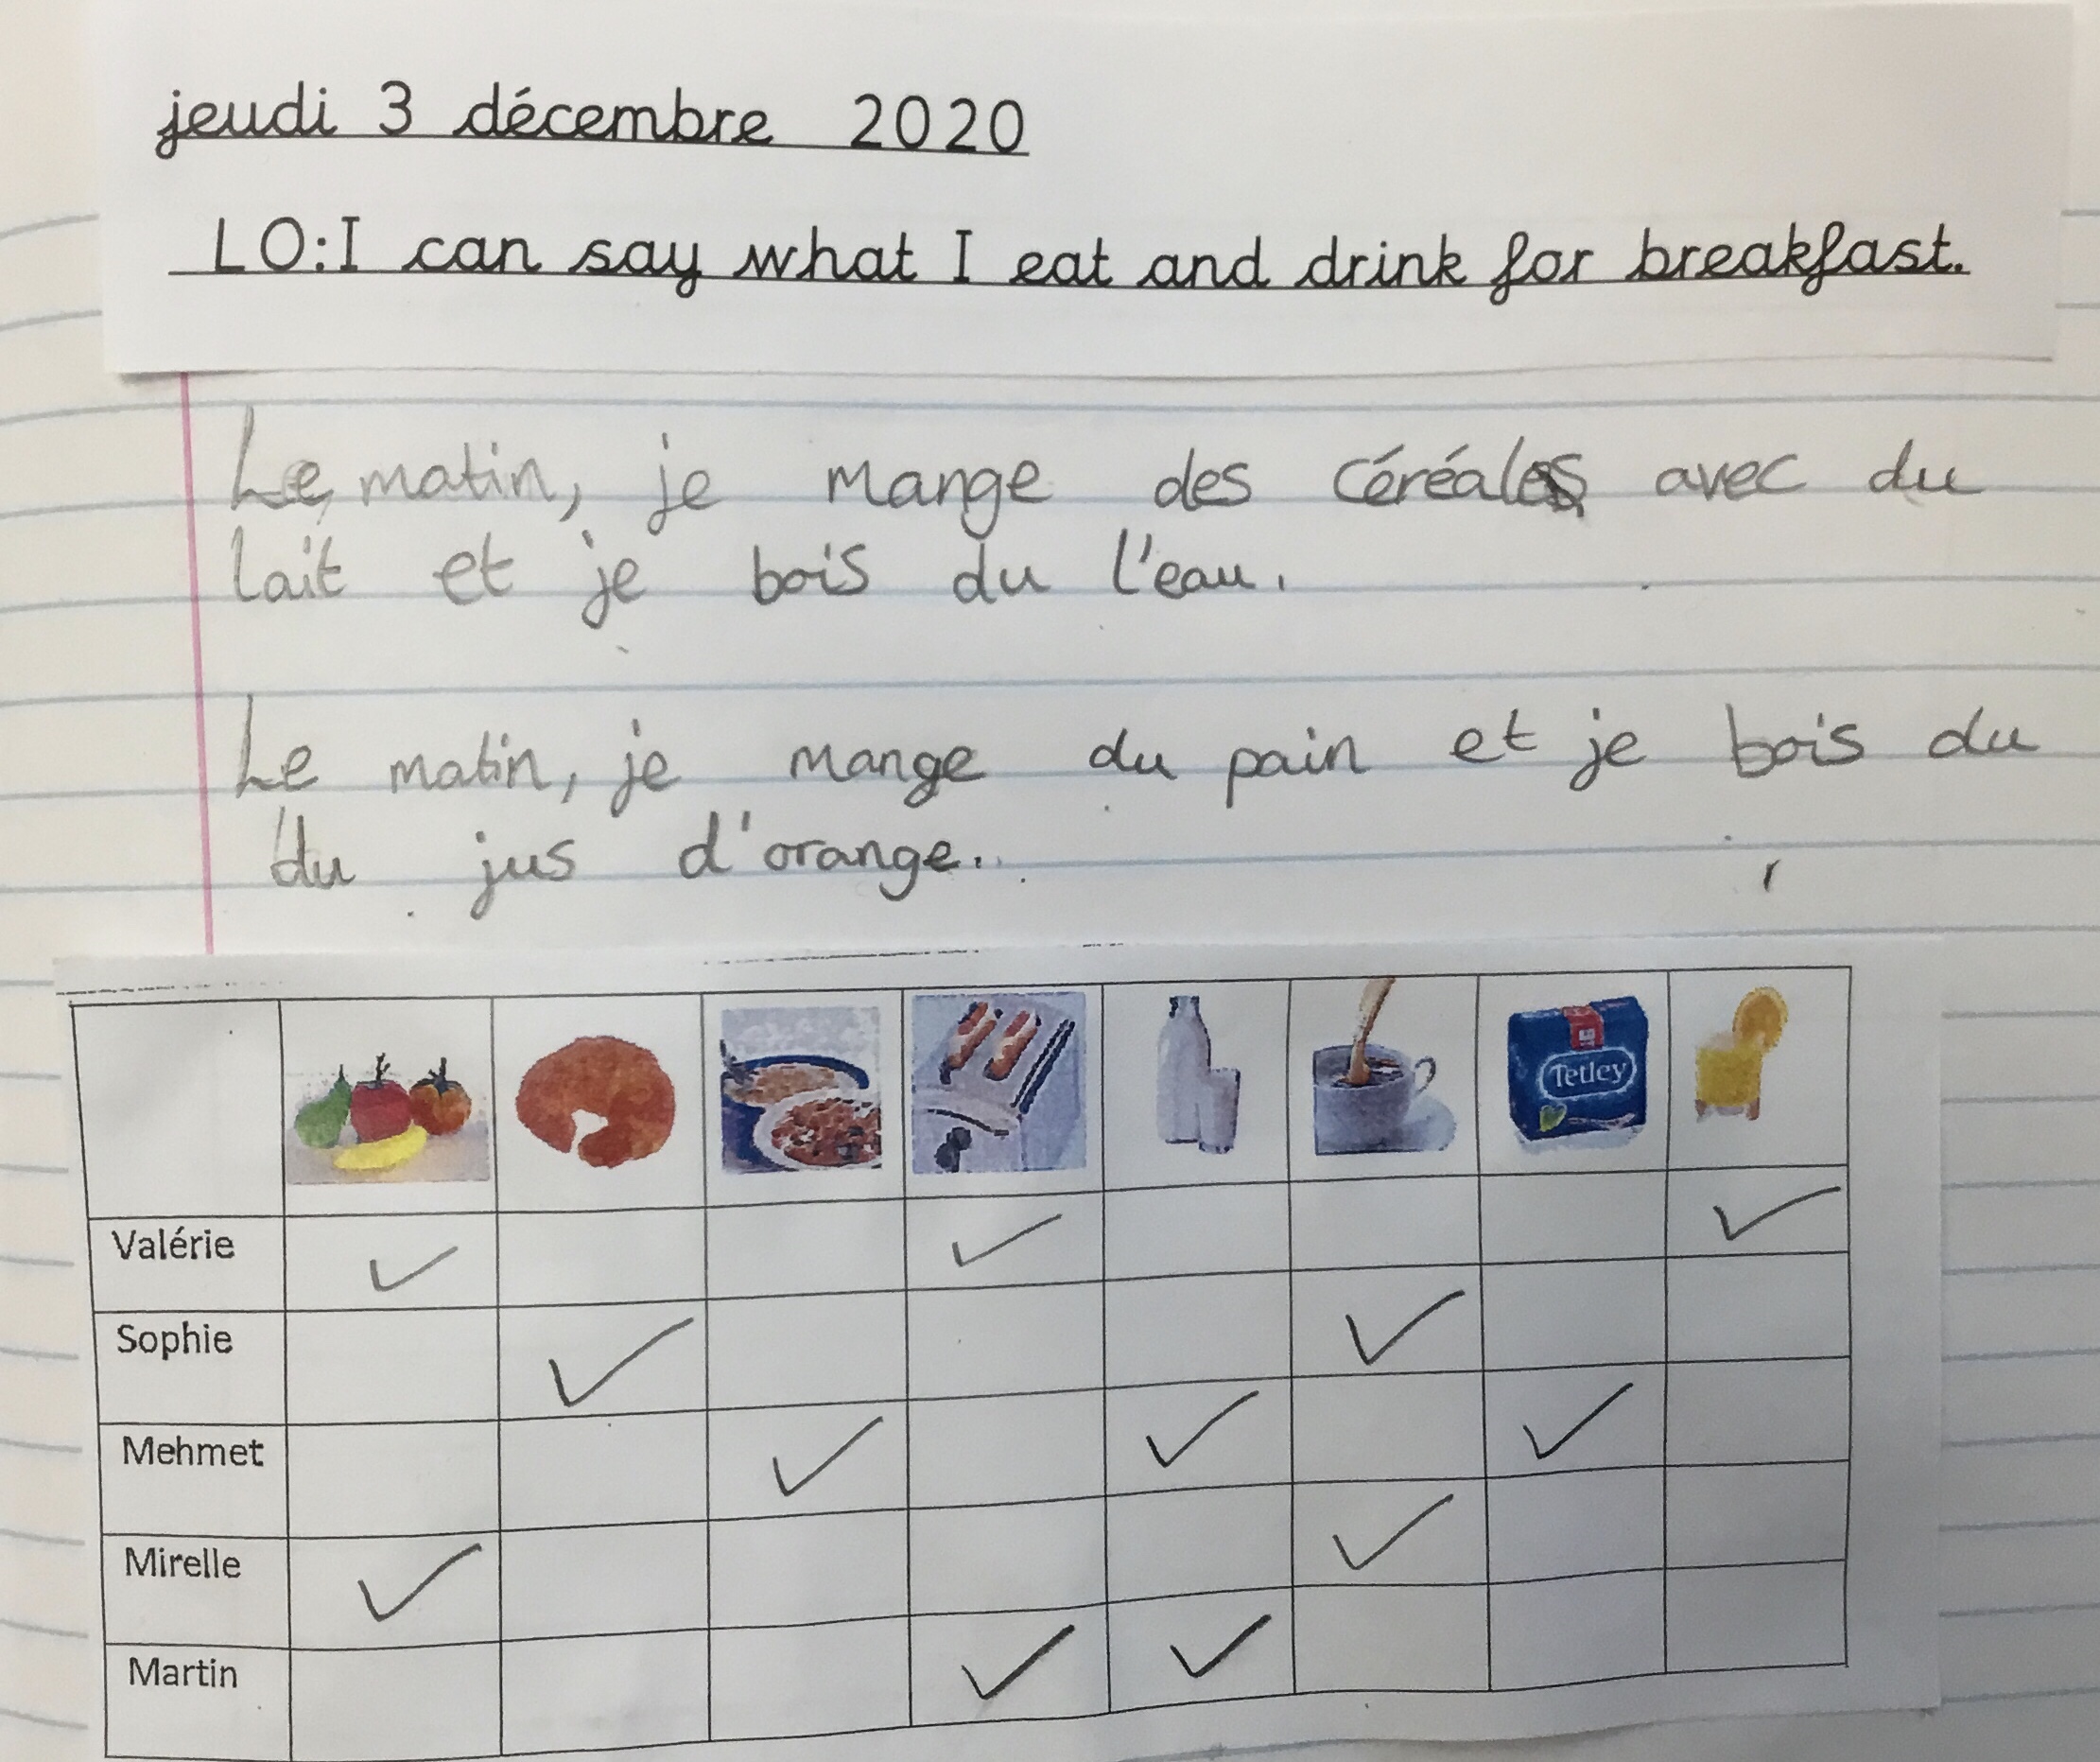 jeudi 3 décembre 2020
LO:I can say what I eat and drink for breakfast.
Le matin, je mange des céréales avec du
lait et je bois du l'eau.
Le matin, je mange du pain et je bois du
du jus d'orange.
Tetley
Valérie
Sophie
Mehmet
Mirelle
Martin